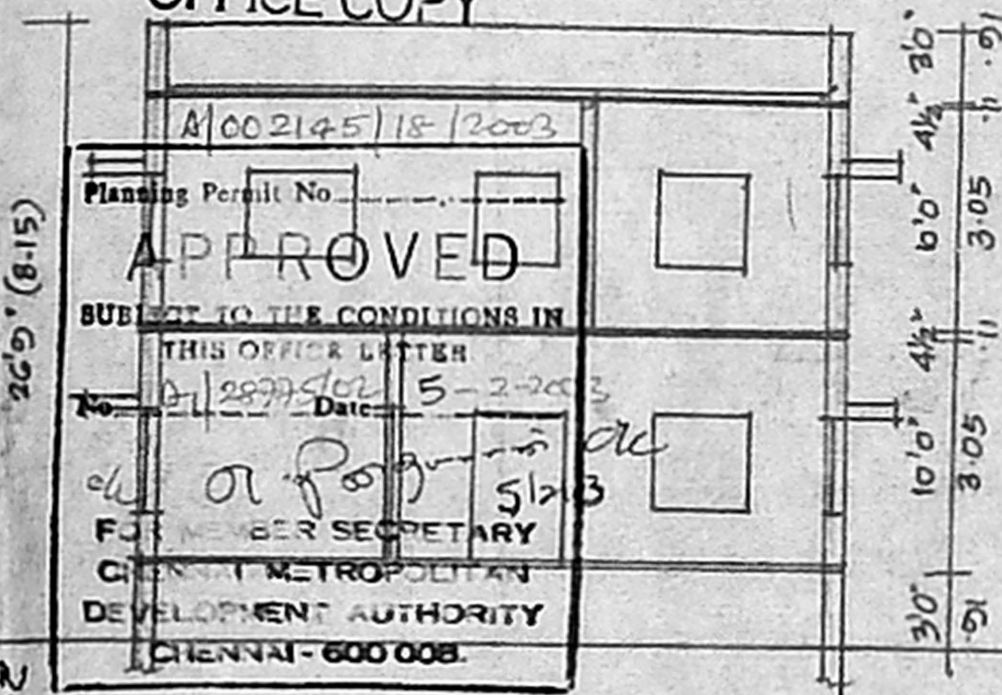 OFFICE COPY
A/002145/18/2003
Planning Permit No
APPROVED
SUBJECT TO THE CONDITIONS IN
THIS OFFICE LETTER
No. A1/28775/02 Date 5-2-2003
5/2/03
FOR MEMBER SECRETARY
CHENNAI METROPOLITAN
DEVELOPMENT AUTHORITY
CHENNAI-600 008.
26'9" (8.15)
3'0" .91
4½" .11
6'0" 3.05
4½" .11
10'0" 3.05
3'0" .91
N